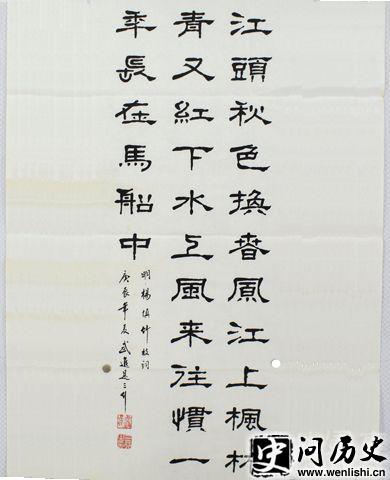 江頭秋色換春風江上楓林
青又紅下水上風来往慣一
年長在馬船中
明楊慎竹枝詞
庚辰年夏武進
问历史
www.wenlishi.cn